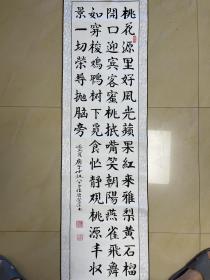 桃花源里好风光蘋果红来雅梨黄石榴
开口迎宾客蜜桃抿嘴笑朝阳燕雀飞舞
如穿梭鸡鸭树下觅食忙静观桃源丰收
景一切荣辱抛脑旁